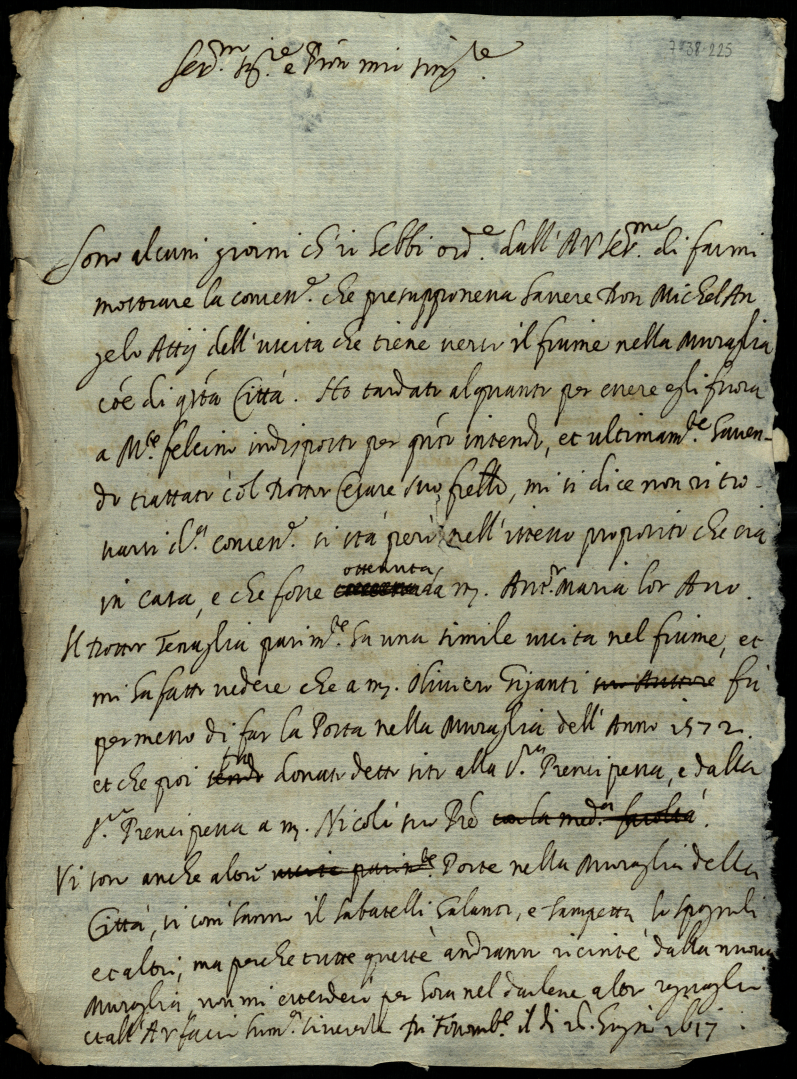 7 38 225
Ser.mo Sig.re e Pron mio sing.re
Sono alcuni giorni ch'io hebbi ord.e dall'AV Ser.ma di farmi
mostrare la concess.e che presupponeva havere Don Michel An
gelo Attij dell'uscita che tiene verso il fiume nella muraglia
cõe di q.sta Città. Ho tardato alquanto per essere egli fuora
a M.te felcino indisposto per q.nto intendo, et ultimam.te haven-
do trattato col Dottor Cesare suo frello, mi si dice non ritro-
varsi d.a concess.e si stà però nell'istesso proposito che sia
in casa, e che fosse ottenuta da m. Ant.o Maria lor Avo.
Il Dottor Tenaglia parim.te ha una simile uscita nel fiume, et
mi ha fatto vedere che a m. Oliviero Giganti suo Auttore fù
permesso di far la Porta nella muraglia dell'Anno 1572.
et che poi donato detto sito alla S.ra Prencipessa, e dalla
S.ra Prencipessa a m. Nicolò suo Prẽ con la med.a facoltà.
Vi sono anche altre uscite parim.te Porte nella muraglia della
Città, si come hanno il Sabatelli, e li Spagnoli
et altri; ma perche tutte queste andranno recinte dalla nuova
muraglia, non mi estenderò per hora nel darlene altro raguaglio
et all'AV faccio hum.a riverenza Di il dì 26. 1617.